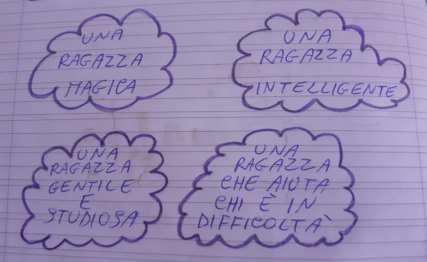 UNA
RAGAZZA
MAGICA
UNA
RAGAZZA
INTELLIGENTE
UNA
RAGAZZA
GENTILE
E
STUDIOSA
UNA
RAGAZZA
CHE AIUTA
CHI È IN
DIFFICOLTÀ